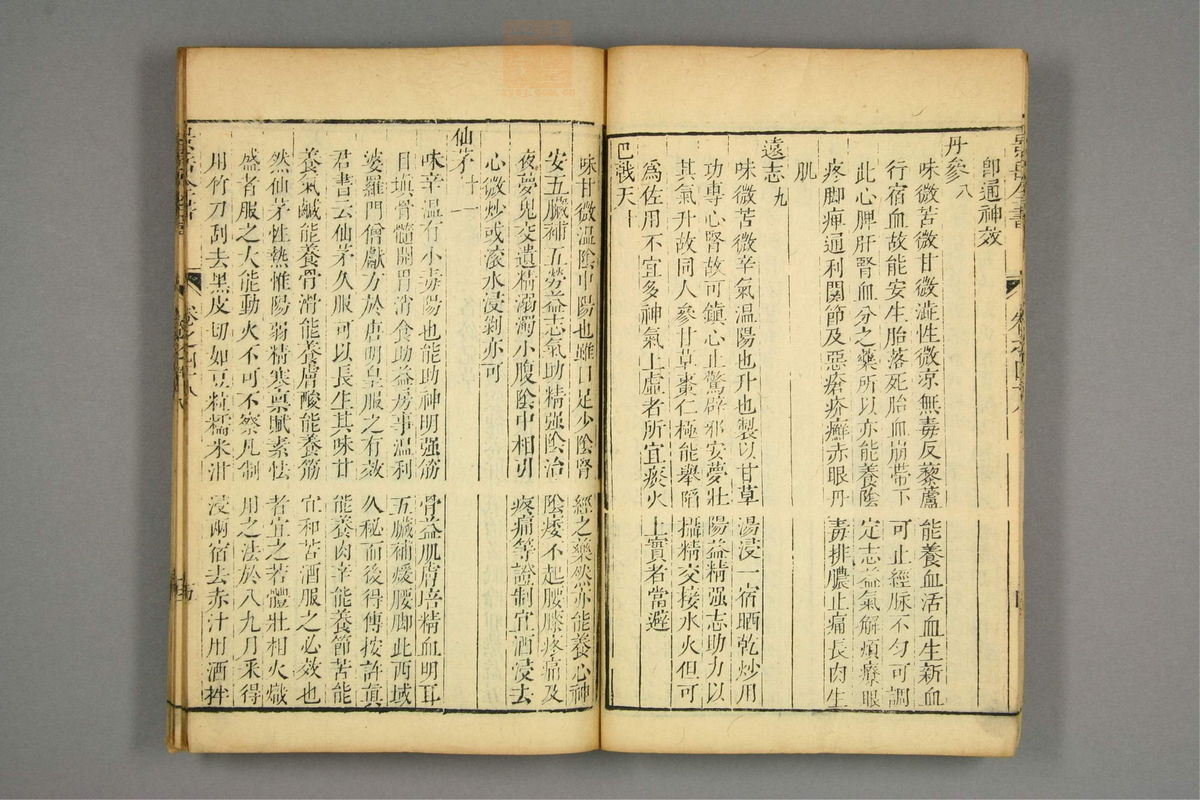 即通神效
丹參八
味微苦微甘微澁性微涼無毒反藜蘆能養血活血生新血
行宿血故能安生胎落死胎血崩帶下可止經脉不勻可調
此心脾肝腎血分之藥所以亦能養陰定志益氣解煩療眼
疼脚痺通利關節及惡瘡疥癬赤眼丹毒排膿止痛長肉生
肌
遠志九
味微苦微辛氣溫陽也升也製以甘草湯浸一宿晒乾炒用
功專心腎故可鎮心止驚辟邪安夢壯陽益精强志助力以
其氣升故同人參甘草棗仁極能舉陷攝精交接水火但可
爲佐用不宜多神氣上虛者所宜痰火上實者當避
巴戟天十
味甘微溫陰中陽也雖曰足少陰腎經之藥然亦能養心神
安五臟補五勞益志氣助精强陰治陰痿不起腰膝疼痛及
夜夢鬼交遺精溺濁小腹陰中相引疼痛等證制宜酒浸去
心微炒或滚水浸剝亦可
仙茅十一
味辛溫有小毒陽也能助神明强筋骨益肌膚培精血明耳
目塡骨髓開胃消食助益房事溫利五臟補煖腰脚此西域
婆羅門僧獻方於唐明皇服之有效久秘而後得傳按許眞
君書云仙茅久服可以長生其味甘能養肉辛能養節苦能
養氣鹹能養骨滑能養膚酸能養筋宜和苦酒服之必效也
然仙茅性熱惟陽弱精寒禀賦素怯者宜之若體壯相火熾
盛者服之大能動火不可不察凡制用之法於八九月采得
用竹刀刮去黑皮切如豆粒糯米泔浸兩宿去赤汁用酒拌
卷之四十八